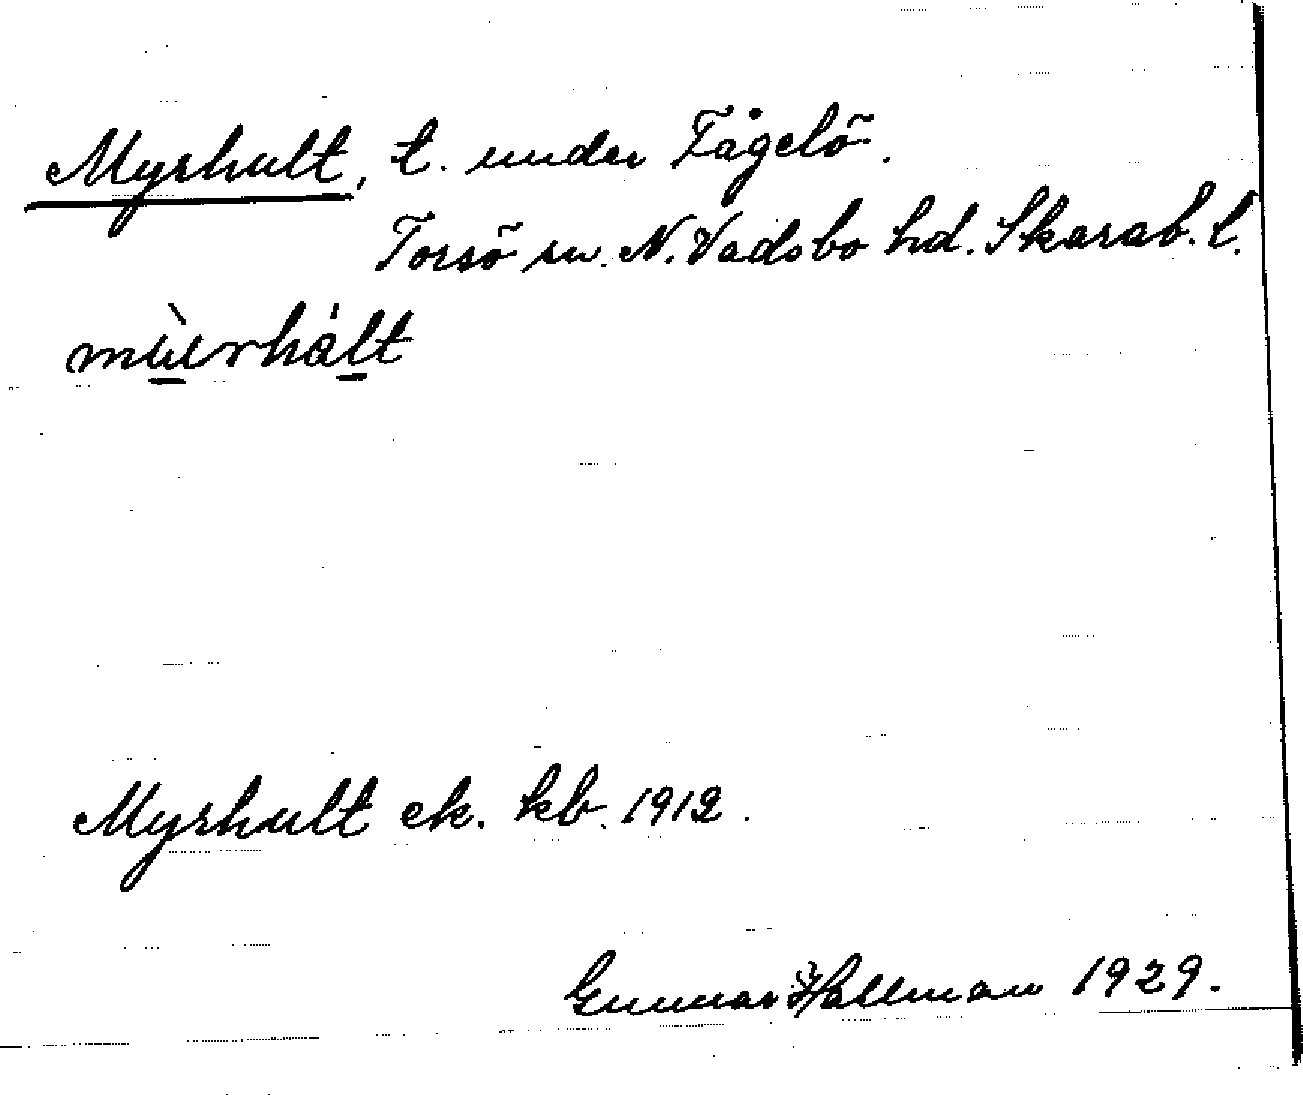 Myrhult, t. under Fågelö.
Torsö sn. N. Vadsbo hd. Skarab. l.
Myrhult ek. kb. 1912.
Gunnar Hallman 1929.